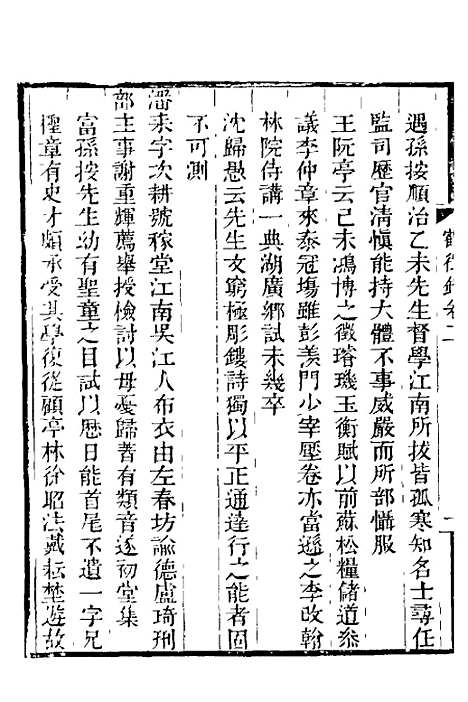 遇孫按順治乙未先生督學江南所拔皆孤寒知名士尋任
監司歷官清愼能持大體不事威嚴而所部懾服
王阮亭云己未鴻博之徵璿璣玉衡賦以前蘇松糧儲道叅
議李仲章來泰冠塲雖彭羨門少宰壓卷亦當遜之李改翰
林院侍講一典湖廣鄉試未幾卒
沈歸愚云先生文窮極彫鏤詩獨以平正通達行之能者固
不可測
潘耒字次耕號稼堂江南吳江人布衣由左春坊諭德盧琦刑
部主事謝重輝薦舉授檢討以母憂歸著有類音遂初堂集
富孫按先生幼有聖童之目試以曆日能首尾不遺一字兄
檉章有史才頗承受其學復從顧亭林徐昭法戴耘埜遊故
鶴徵錄卷二